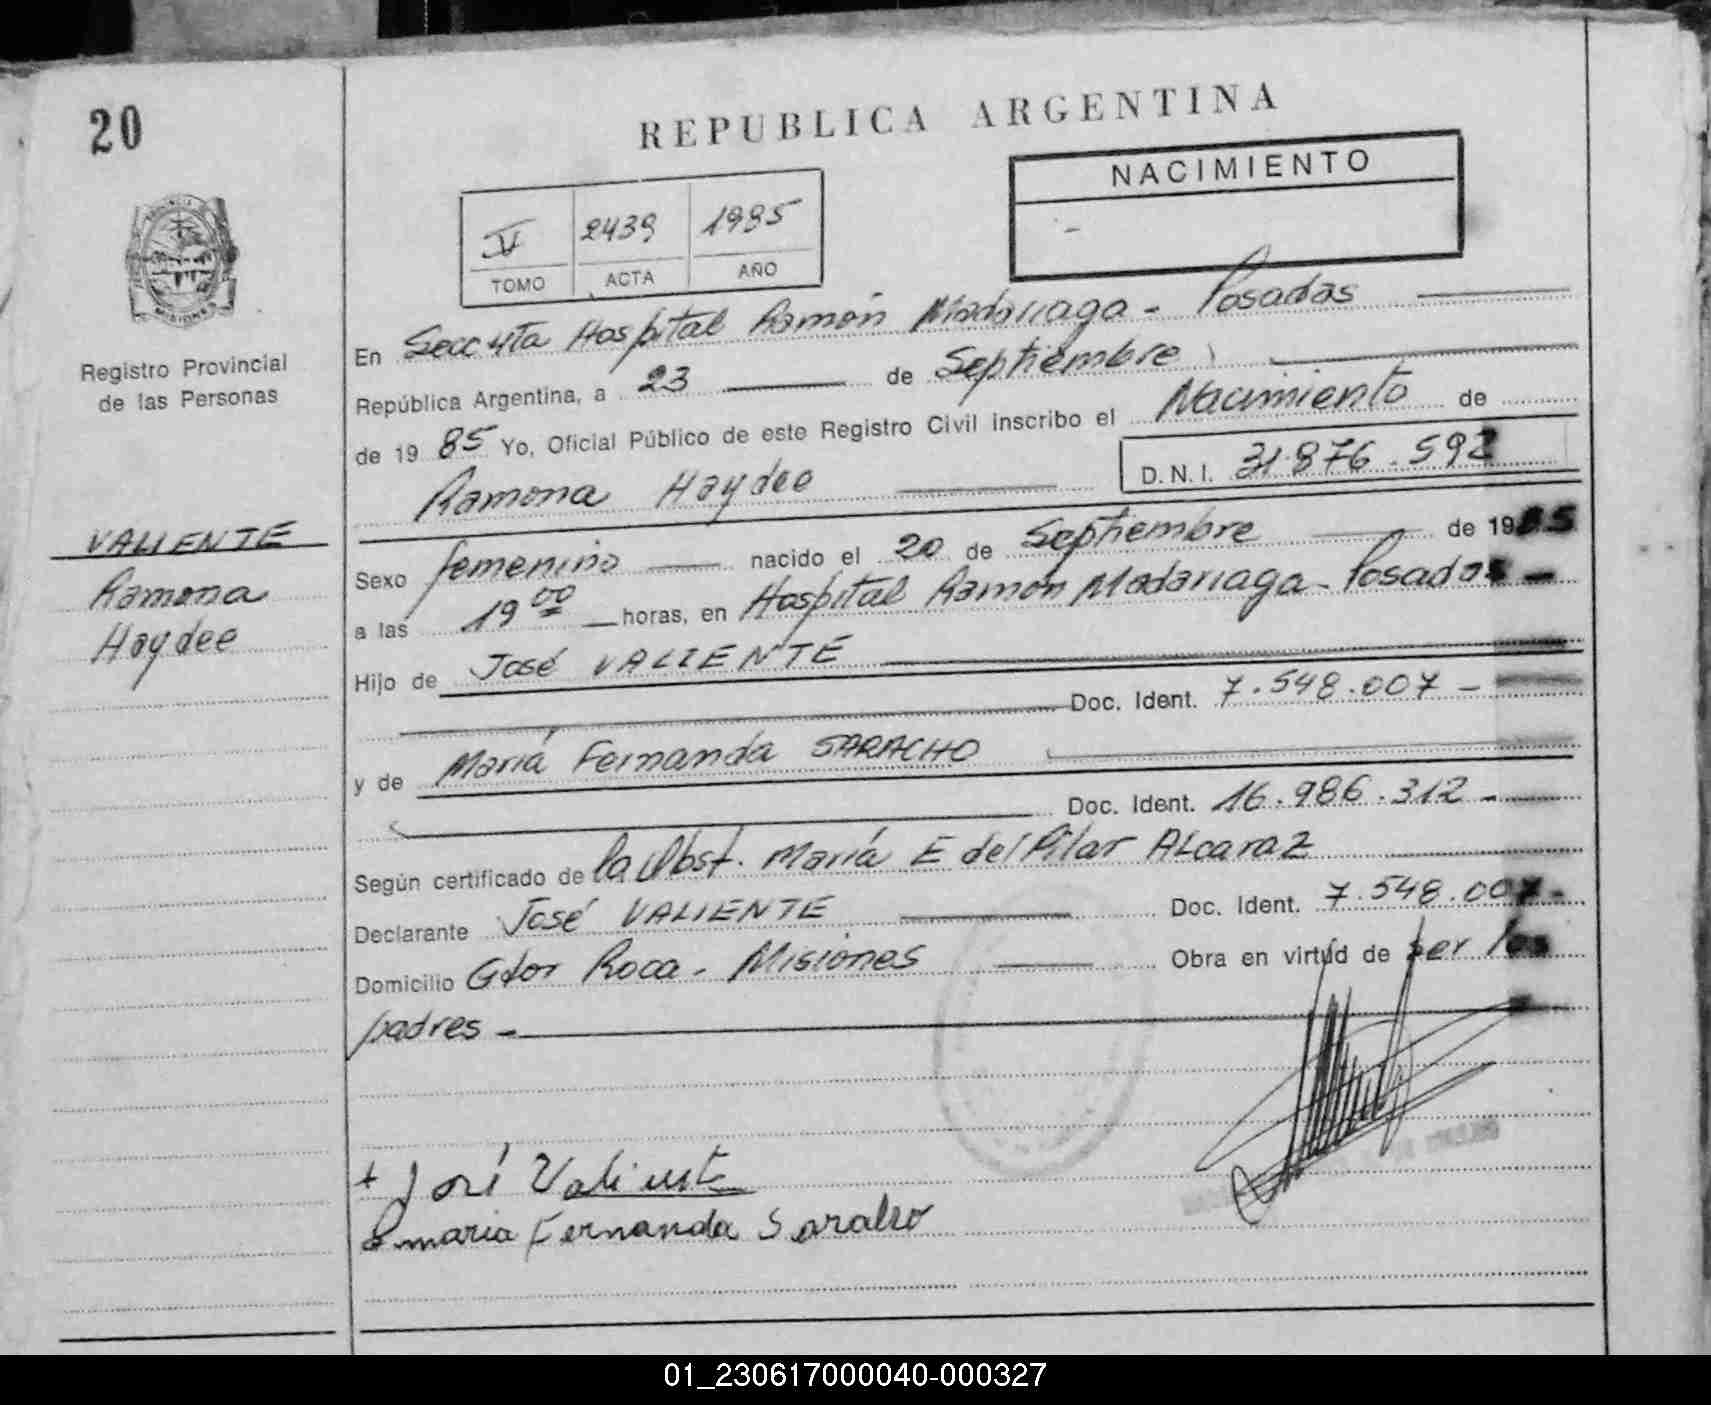 20
REPUBLICA ARGENTINA
NACIMIENTO
-
V 2439 1985
TOMO ACTA AÑO
PROVINCIA DE MISIONES
Registro Provincial
de las Personas
VALIENTE
Ramona
Haydee
En Secc 4ta Hospital Ramón Madariaga - Posadas
República Argentina, a 23 de Septiembre
de 19 85 Yo, Oficial Público de este Registro Civil inscribo el Nacimiento de
Ramona Haydee D.N.I. 31.876.592
Sexo femenino nacido el 20 de Septiembre de 1985
a las 19 00 horas, en Hospital Ramón Madariaga - Posadas -
Hijo de José VALIENTE
Doc. Ident. 7.548.007 -
y de María Fernanda SARACHO
Doc. Ident. 16.986.312 -
Según certificado de la Obst. María E del Pilar ALcaraz
Declarante José VALIENTE Doc. Ident. 7.548.007 -
Domicilio Gdor Roca - Misiones Obra en virtud de ser los
padres -
+ José Valiente
maria Fernanda Saracho
01_230617000040-000327